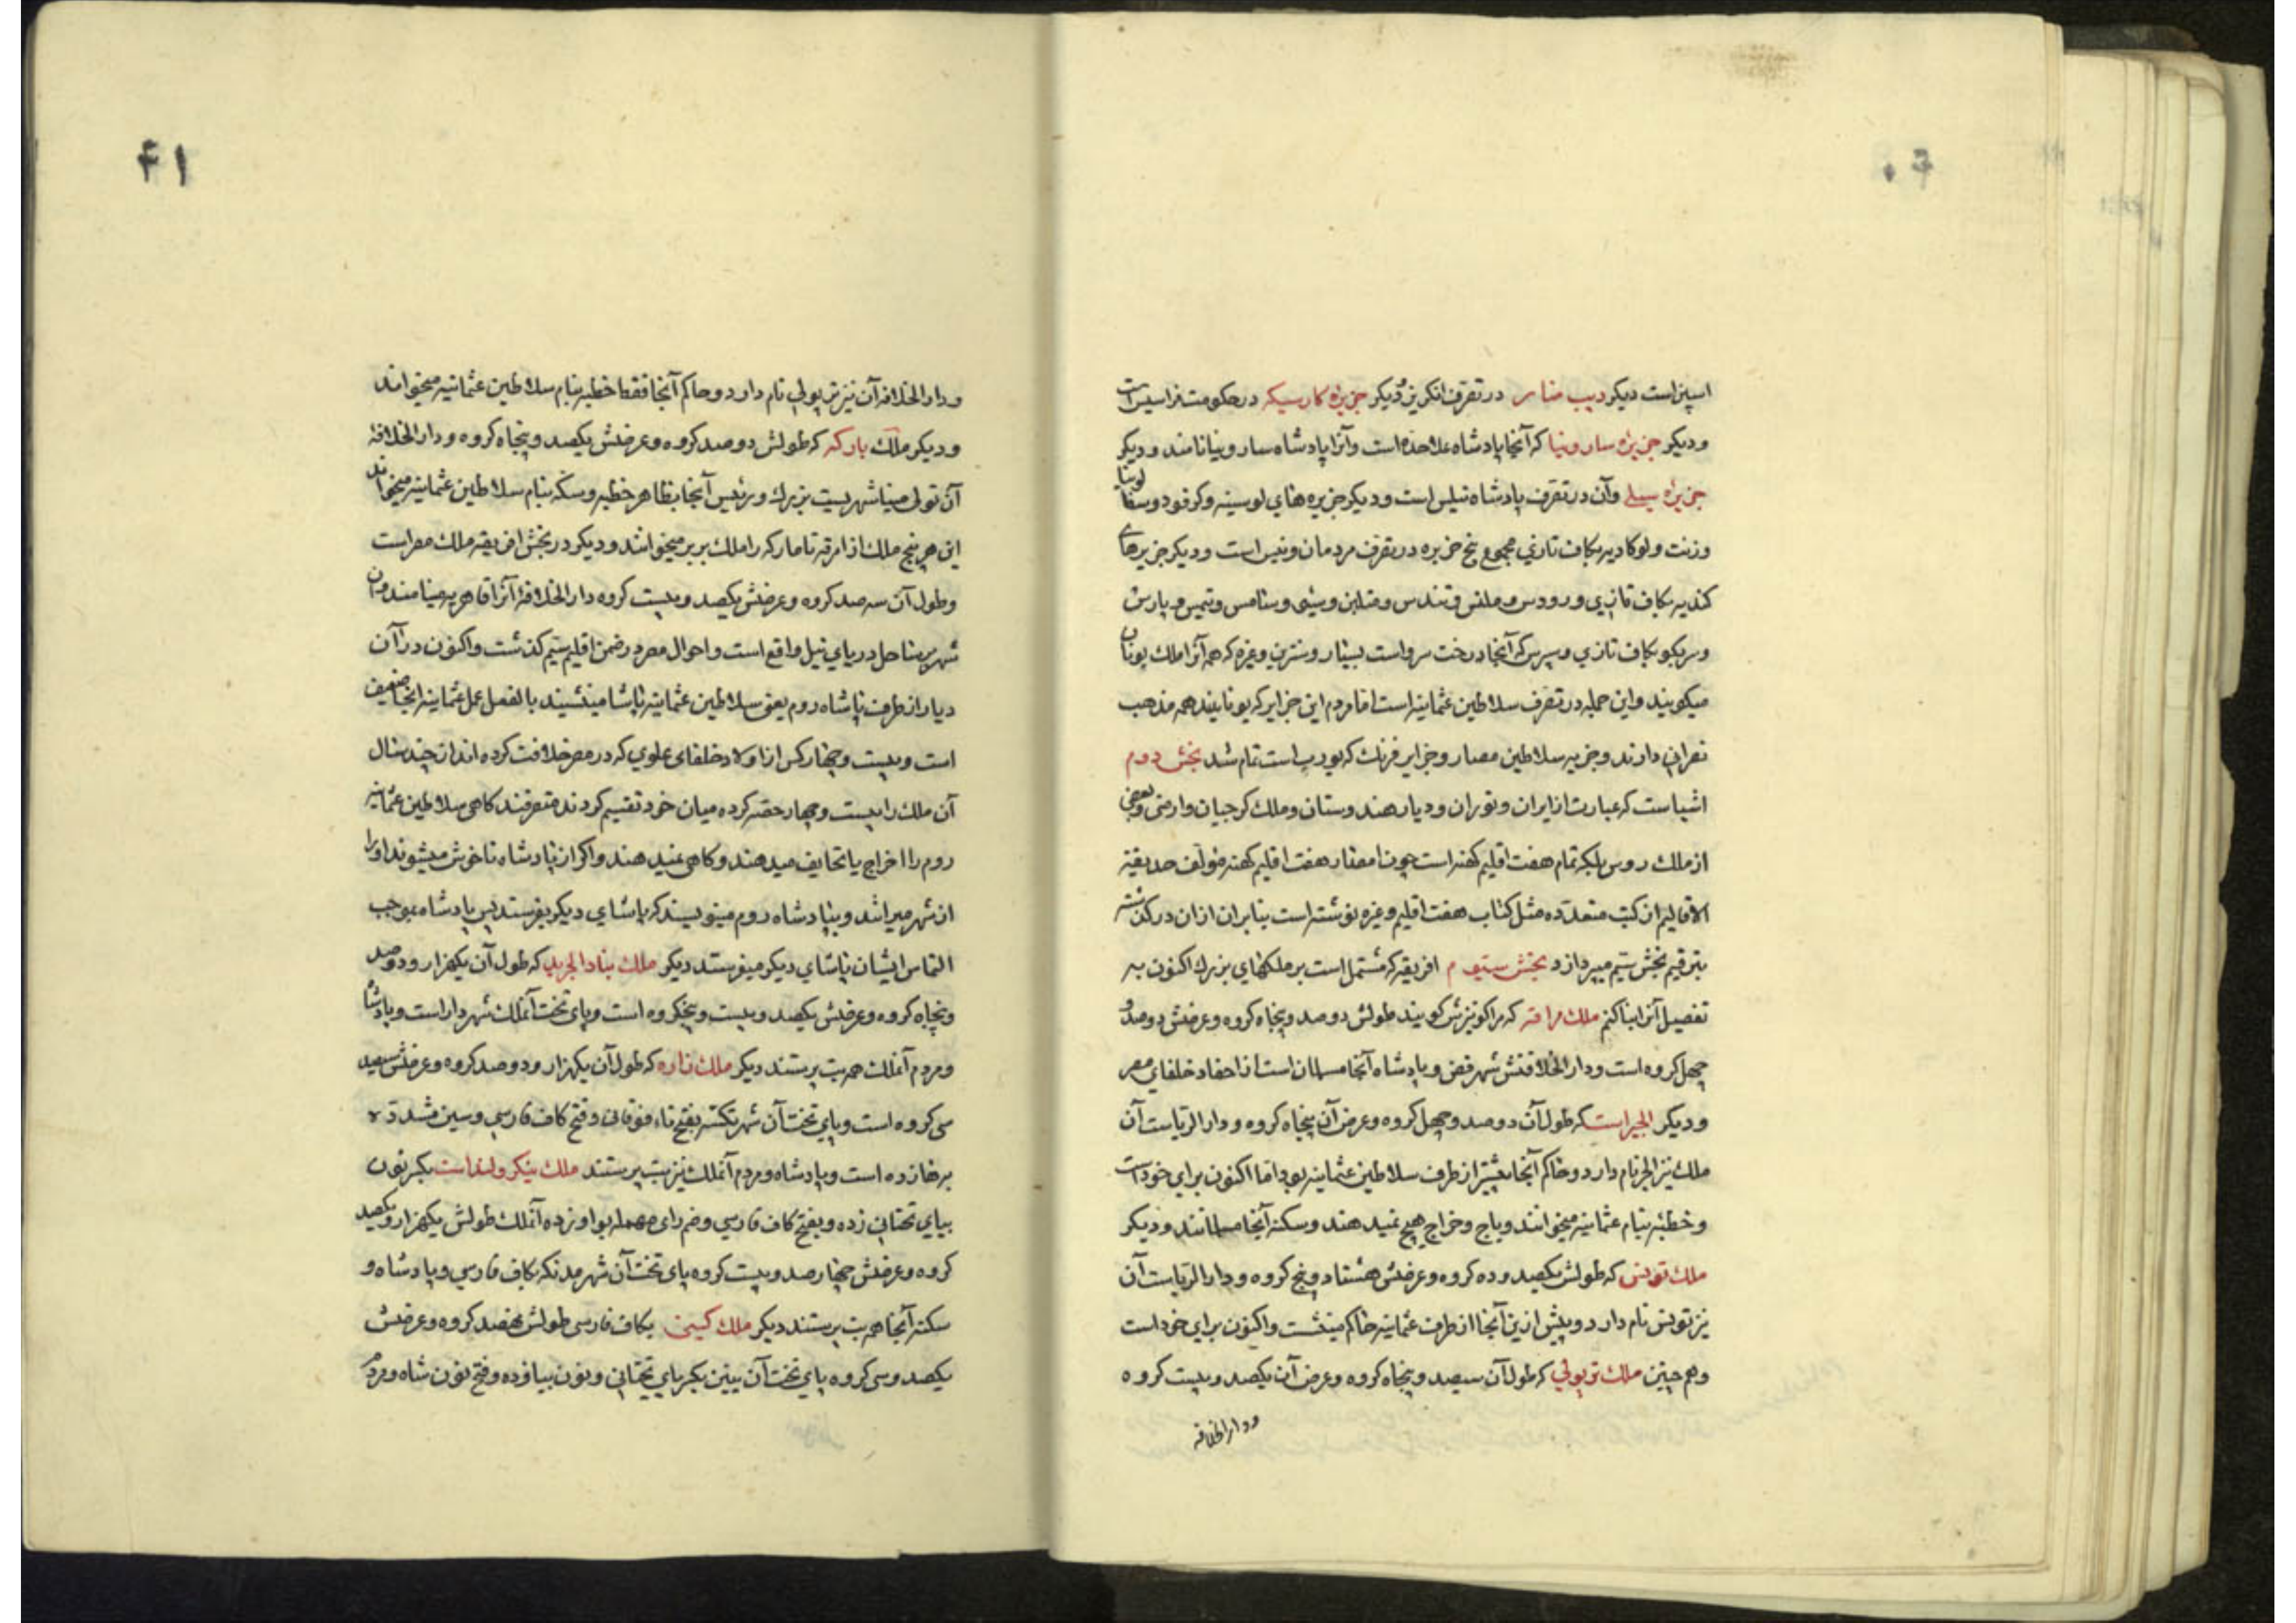 اسپنراست دیکر دیب منار در تصرف انکریز و دیکر جزیرۀ کارسیکه در حکومت فراسیس است
ودیکر جزیرۀ ساردنیا که آنجا پادشاه علاحده است وآنرا پادشاه ساردنیا نامند ودیکر
جزیرۀ سیلے وآن در تصرف پادشاه نپلس است ودیکر جزیره های لوسینه وکرفو
وزنت ولوکادیه بکاف تازی مجموع پنج جزیره در تصرف مردمان ونیس است ودیکر جزیرهای
کندیه بکاف تازی ورودس و وبارس
بکاف تازی وسپرس که آنجا درخت سرو است بسیار وغیره که همه آنرا ملك یونان
میکویند واین جمله در تصرف سلاطین عثمانیه است اما مردم این جزایر که یونانیند همه مذهب
نصرانی دارند وجزیه سلاطین وجزایر فرنك که یورپ است تمام شد بخش دوم
اشیاست که عبارت از ایران وتوران ودیار هندوستان وملك کرجیان وارمنی وبعضی
از ملك روس بلکه تمام هفت اقلیم کهنه است چون هفت اقلیم کهنه مؤلف حدیقة
الاقالیم از کتب متعدده مثل کتاب هفت اقلیم وغیره نوشته است بنابران ازان درکذشته
بترقیم بخش سیم میپردازد بخش سیوم افریقه که مشتمل است بر ملکهای بزرك اکنون به
تفصیل آنرا بیان کنم ملك مراقه که مراکو نیزش کویند طولش دوصد وپنجاه کروه وعرضش دوصد و
چهل کروه است ودار الخلافتش شهر فض وپادشاه آنجا مسلمان است از احفاد خلفای مصر
ودیکر الجیر است که طول آن دوصد وچهل کروه وعرض آن پنجاه کروه ودار الریاست آن
ملك نیز الجر نام دارد وحاکم آنجا پیشتر از طرف سلاطین عثمانیه بود اما اکنون برای خود است
وخطبه بنام عثمانیه میخوانند وباج وخراج هیچ نمیدهند وسکنه آنجا مسلمانند ودیکر
ملك تونس که طولش یکصد وده کروه وعرضش هشتاد وپنج کروه ودار الریاست آن
نیز تونس نام دارد وپیش ازین آنجا از طرف عثمانیه حاکم مینشست واکنون برای خود است
وهم چنین ملك ترپولی که طول آن سیصد وپنجاه کروه وعرض آن یکصد وبیست کروه
ودار الخلافه
۴۱
ودار الخلافه آن نیز ترپولی نام دارد وحاکم آنجا فقط خطبه بنام سلاطین عثمانیه میخوانند
ودیکر ملك بارکه که طولش دوصد کروه وعرضش یکصد وپنجاه کروه ودار الخلافۀ
آن تولی میتا شهریست بزرك ورئیس آنجا بظاهر خطبه وسکه بنام سلاطین عثمانیه میخواند
این هر پنج ملك از امرقه تا مارکه را ملك بربر میخوانند ودیکر در بخش افریقه ملك مصر است
وطول آن سه صد کروه وعرضش یکصد وبیست کروه دار الخلافۀ آنرا قاهریه مینامند وآن
شهر بر ساحل دریای نیل واقع است واحوال مصر در ضمن اقلیم سیم کذشت واکنون در آن
دیار از طرف پاشاه روم یعنی سلاطین عثمانیه پاشا مینشیند بالفعل عمل عثمانیه آنجا ضعیف
است وبیست وچهار کس از اولاد خلفای علوی که در مصر خلافت کرده اند از چند سال
آن ملك را بیست وچهار حصه کرده میان خود تقسیم کردند متصرفند کاهی سلاطین عثمانیه
روم را اخراج یا تحایف میدهند وکاهی نمیدهند واکر از پادشاه ناخوش میشوند او را
از شهر میرانند وبپادشاه روم مینویسند که پاشای دیکر بفرستد پس پادشاه بموجب
التماس ایشان پاشای دیکر میفرستد دیکر ملك بناد الجرید که طول آن یکهزار ودوصد
وپنجاه کروه وعرضش یکصد وبیست وپنجکروه است وپای تخت آنملك شهر دار است وپادشاه
ومردم آنملك همه بت پرستند دیکر ملك زاره که طول آن یکهزار ودوصد کروه وعرضش سیصد
سی کروه است وپای تخت آن شهر تکسه بفتح تاء فوقانی وفتح کاف فارسی وسین مشدده
بهازده است وپادشاه ومردم آنملك نیز بت پرستند ملك نیکرولند است بکسر نون
بیای تحتانی زده وبفتح کاف فارسی وضم رای مهمله بواو زده آنملك طولش یکهزار ویکصد
کروه وعرضش چهارصد وبیست کروه پای تخت آن شهر مدنکه بکاف فارسی وپادشاه و
سکنه آنجا همه بت پرستند دیکر ملك کینی بکاف فارسی طولش نهصد کروه وعرضش
یکصد وسی کروه پای تخت آن بنین بکسر بای تحتانی ونون بیا زده وفتح نون شاه ومردم